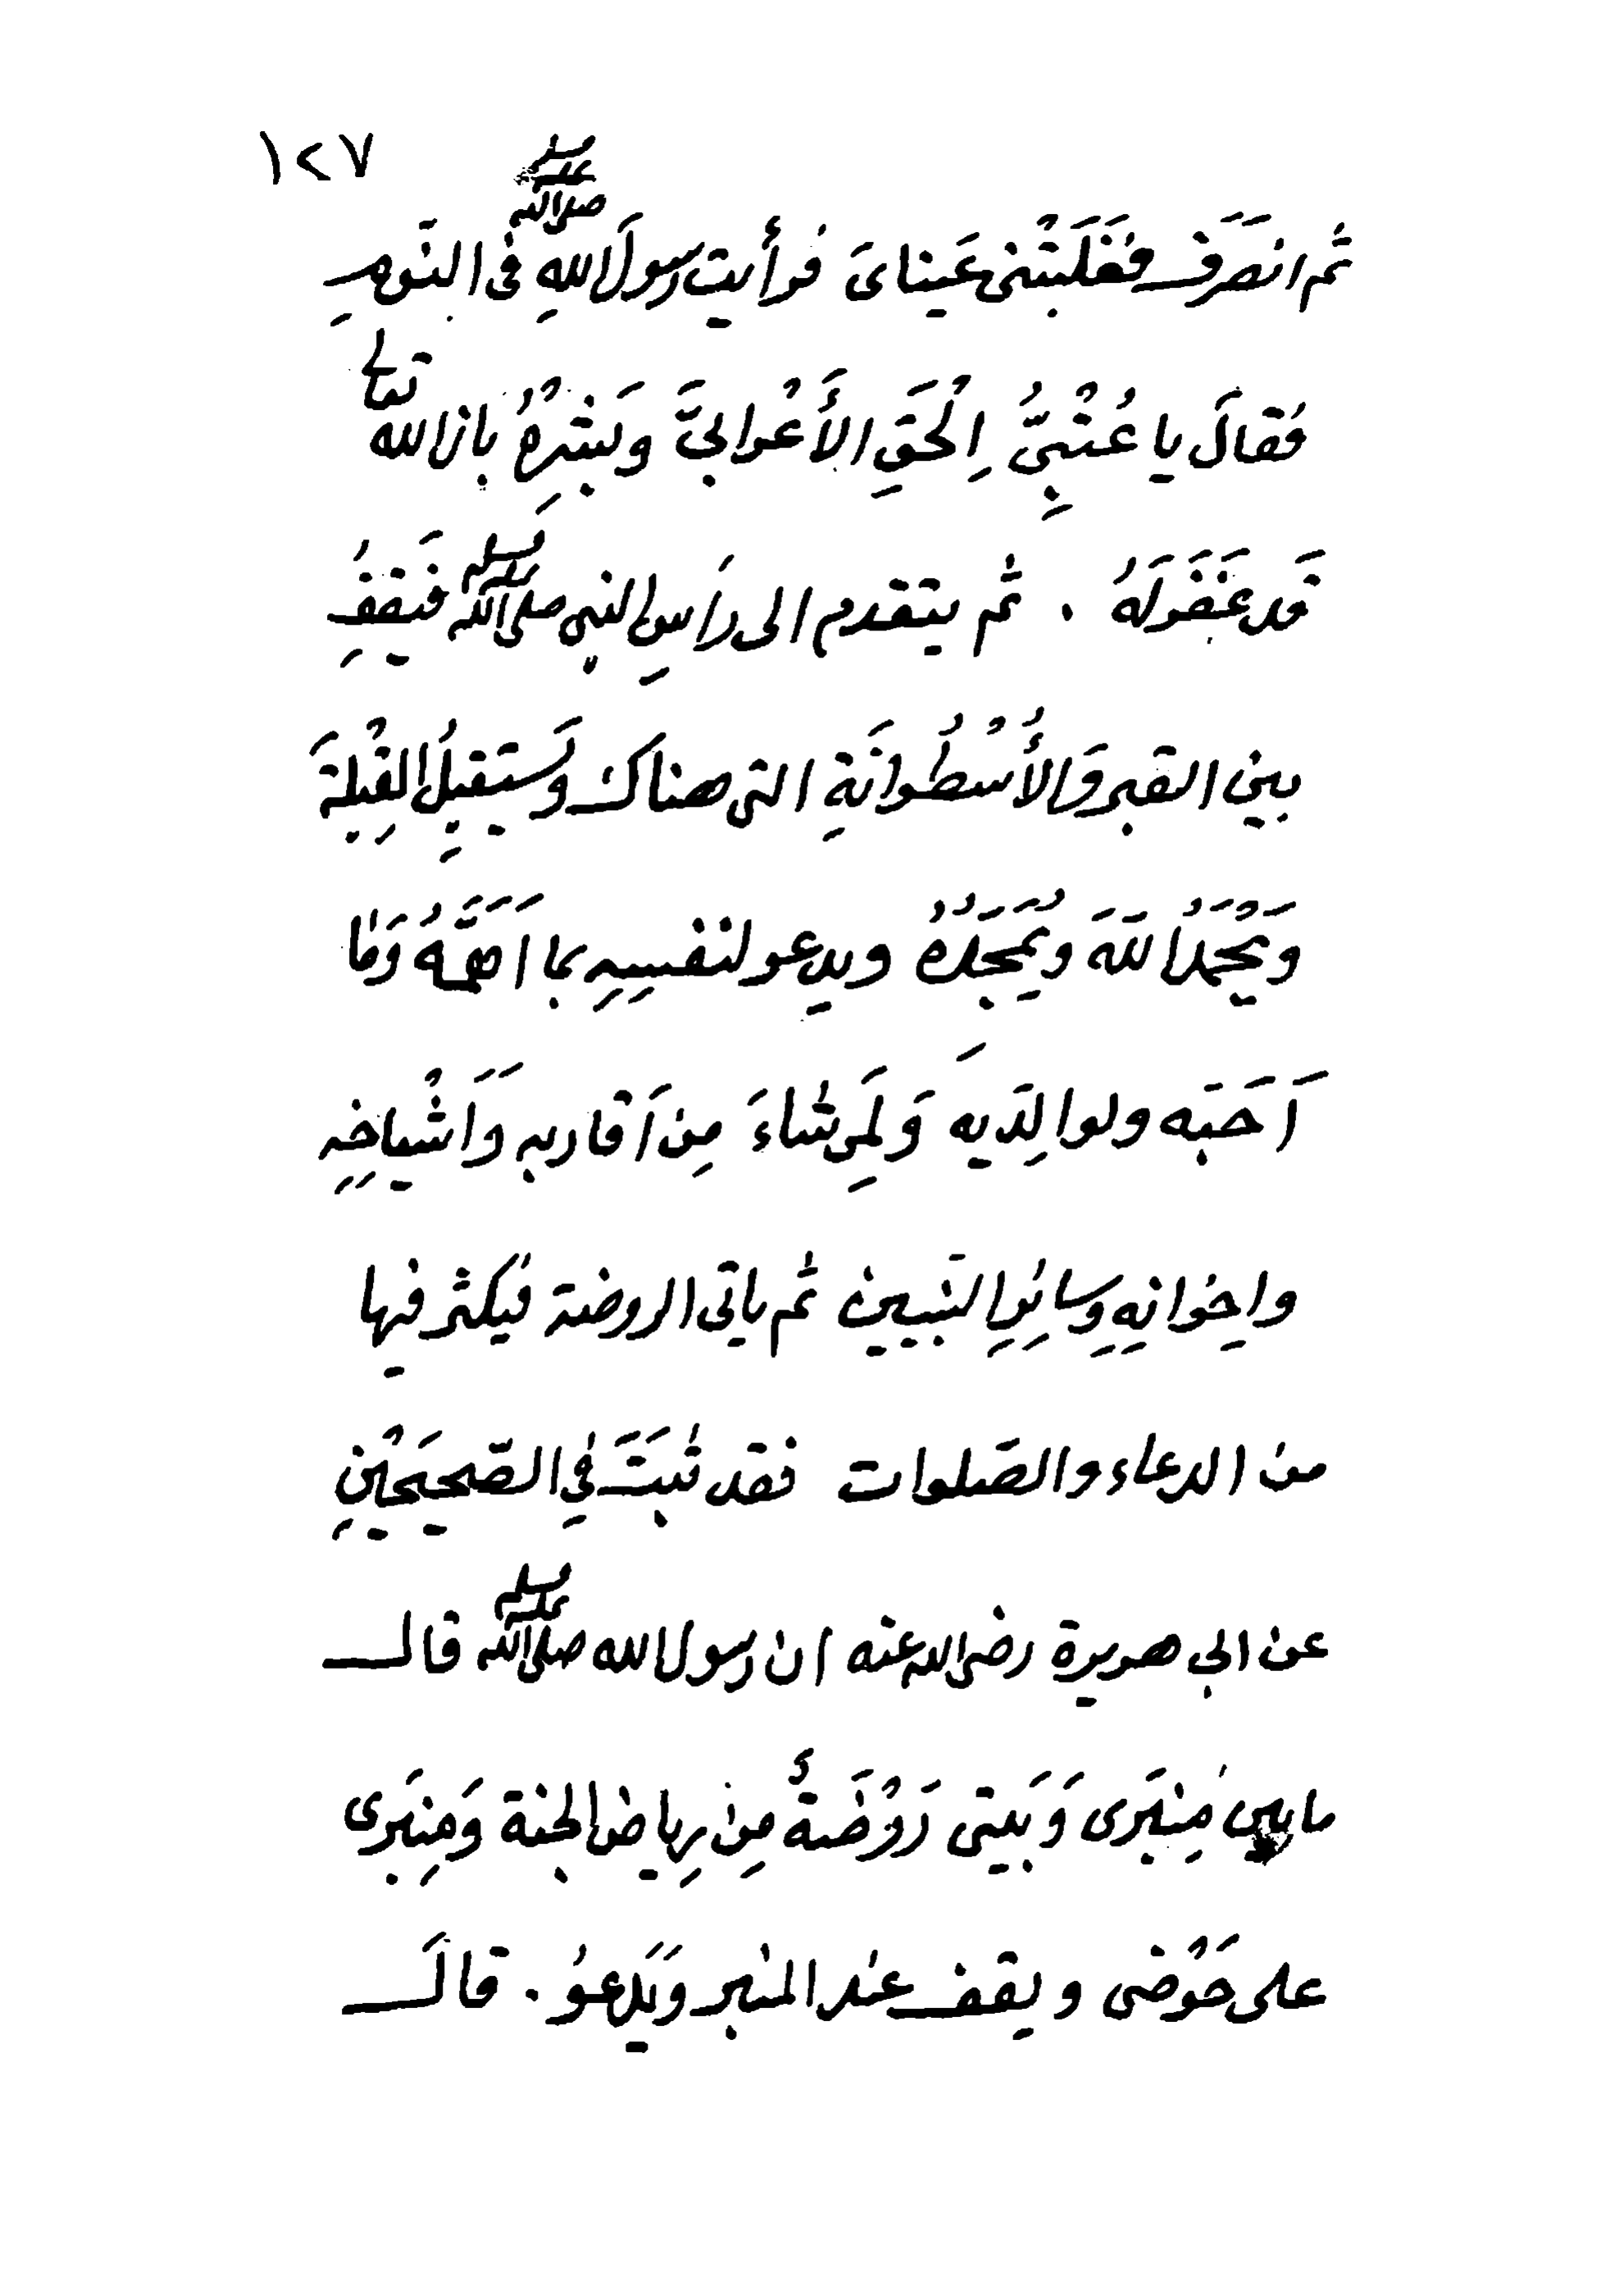 ١٢٧
ثُم انصَرَفَ فَغَلَبَتْنى عَيناىَ فرأيت رسولَ اللهِ صلى الله عليه وسلم فى النَومِ
فقالَ يا عُتْبِىُّ اِلْحَقِ الأَعْرابىَّ وَبَشِّرْهُ بان الله تعالى
قَد غَفَرَلَهُ . ثم يتقدم الى رَأسِ النبى صلى الله عليه وسلم فَيَقِفُ
بين القبر وَالأُسْطُوانَةِ التى هناك وَيَستَقبِلُ القِبْلَةَ
وَيَحْمَدُ اللّهَ ويُمَجِّدُهُ ويدعو لنفسِهِ بما اَهَمَّهُ وَمٰا
اَحَبَّه ولوالِدَيه وَلِمَن شاءَ مِن اَقاربه وَاَشْياخِهِ
واِخوانِهِ وَسائِرِ النَبيين ثم ياتى الروضة فيُكثر فيها
من الدعاء والصَلوات فقد ثَبَتَ فِى الصَّحيحَيْنِ
عن ابى هريرة رضى الله عنه ان رسول الله صلى الله عليه وسلم قالـ
ما بين مِنبَرى وَبَيتى رَوْضَةٌ مِن رِياض الجنة وَمِنبَرى
على حَوْضى ويقف عند المنبر ويَدعوُ . قالَـ